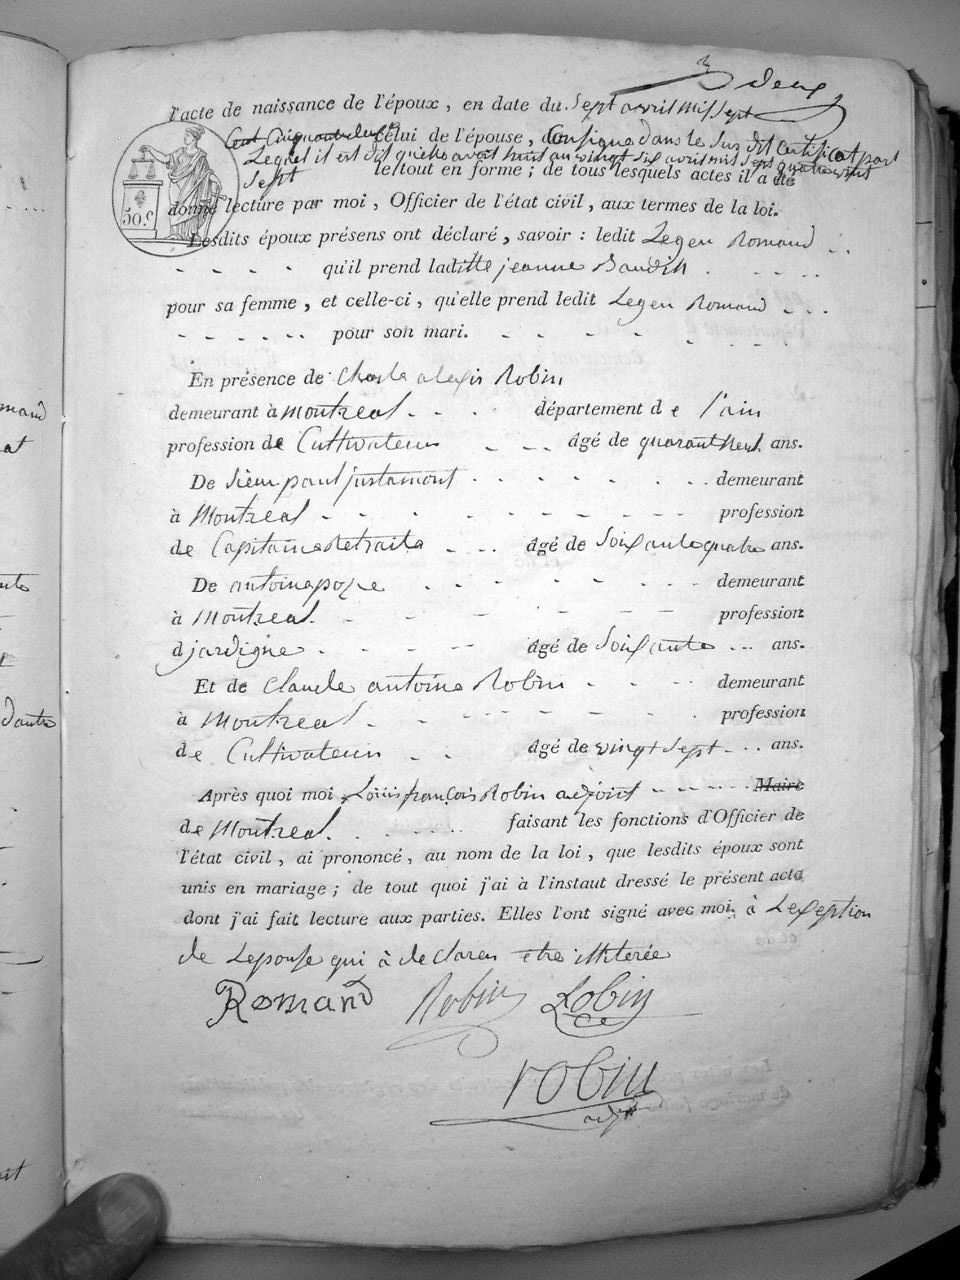 3 deux
l'acte de naissance de l'époux, en date du Sept avril mil Sept
Cent Cinquante celui de l'épouse, Consigné dans le Sus dit Certificat par
Lequel il est dit qu'elle avait au vingt Six avril mil Sept quatre vingt
Sept le tout en forme; de tous lesquels actes il a été
donné lecture par moi, Officier de l'état civil, aux termes de la loi.
50 c.
Lesdits époux présens ont déclaré, savoir: ledit Leger Romand
qu'il prend laditte jeanne Baudin
pour sa femme, et celle-ci, qu'elle prend ledit Leger Romand
pour son mari.
En présence de Charle alexis Robin
demeurant à montreal département de l'ain
profession de Cultivateur âgé de quarant neuf ans.
De Sieur paul justamont demeurant
à Montreal profession
de Capitaine Retraite âgé de Soixante quatre ans.
De antoine demeurant
à Montreal profession
d âgé de Soixante ans.
Et de Claude antoine Robin demeurant
à Montreal profession
de Cultivateur âgé de vingt Sept ans.
Après quoi moi Louis françois Robin adjoint Maire
de Montreal faisant les fonctions d'Officier de
l'état civil, ai prononcé, au nom de la loi, que lesdits époux sont
unis en mariage; de tout quoi j'ai à l'instaut dressé le présent acte
dont j'ai fait lecture aux parties. Elles l'ont signé avec moi, à Lexeption
de Lepouse qui à declarer etre illiterée
Romand Robin Robin
robin
adjt